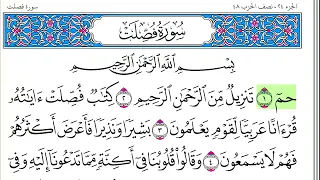 سورة فصلت الجزء ٢٤ - نصف الحزب ٤٨
سُورَةُ فُصِّلَتْ
بِسْمِ اللَّهِ الرَّحْمَٰنِ الرَّحِيمِ
حمٓ ١ تَنزِيلٌ مِّنَ الرَّحْمَٰنِ الرَّحِيمِ ٢ كِتَٰبٌ فُصِّلَتْ ءَايَٰتُهُۥ
قُرْءَانًا عَرَبِيًّا لِّقَوْمٍ يَعْلَمُونَ ٣ بَشِيرًا وَنَذِيرًا فَأَعْرَضَ أَكْثَرُهُمْ
فَهُمْ لَا يَسْمَعُونَ ٤ وَقَالُوا۟ قُلُوبُنَا فِىٓ أَكِنَّةٍ مِّمَّا تَدْعُونَآ إِلَيْهِ وَفِىٓ